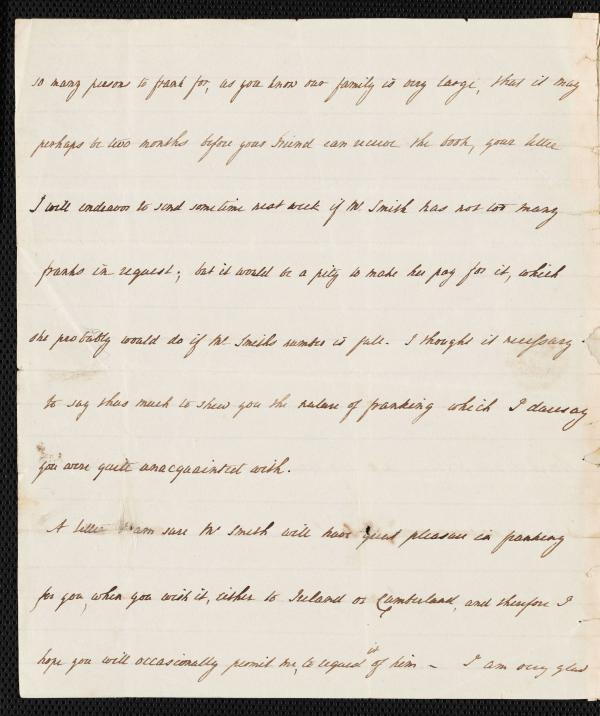 so many persons to frank for, as you know our family is very large, that it may
perhaps be two months before your friend can receive the book, your letter
I will endeavor to send sometime next week if Mr. Smith has not too many
franks in request; but it would be a pity to make her pay for it, which
she probably would do if Mr Smiths number is full. I thought it necessary
to say thus much to shew you the nature of franking which I daresay
you were quite unacquainted with.
A letter I am sure Mr Smith will have great pleasure in franking
for you, when you wish it, either to Ireland or Cumberland, and therefore I
hope you will occasionally permit me, to request it of him – I am very glad